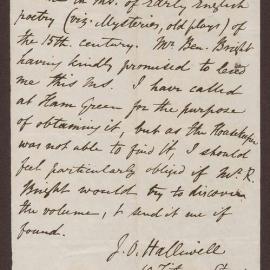 in Ms. of Early English
poetry (viz: Mysteries, old plays) of
the 15th. century. Mr. Ben. Bright
having kindly promised to lend
me this Ms. I have called
at Ham Green for the purpose
of obtaining it, but as the Housekeeper
was not able to find it, I should
feel particularly obliged if Mr. R.
Bright would try to discover
the volume, & send it me if
found.
J. O. Halliwell